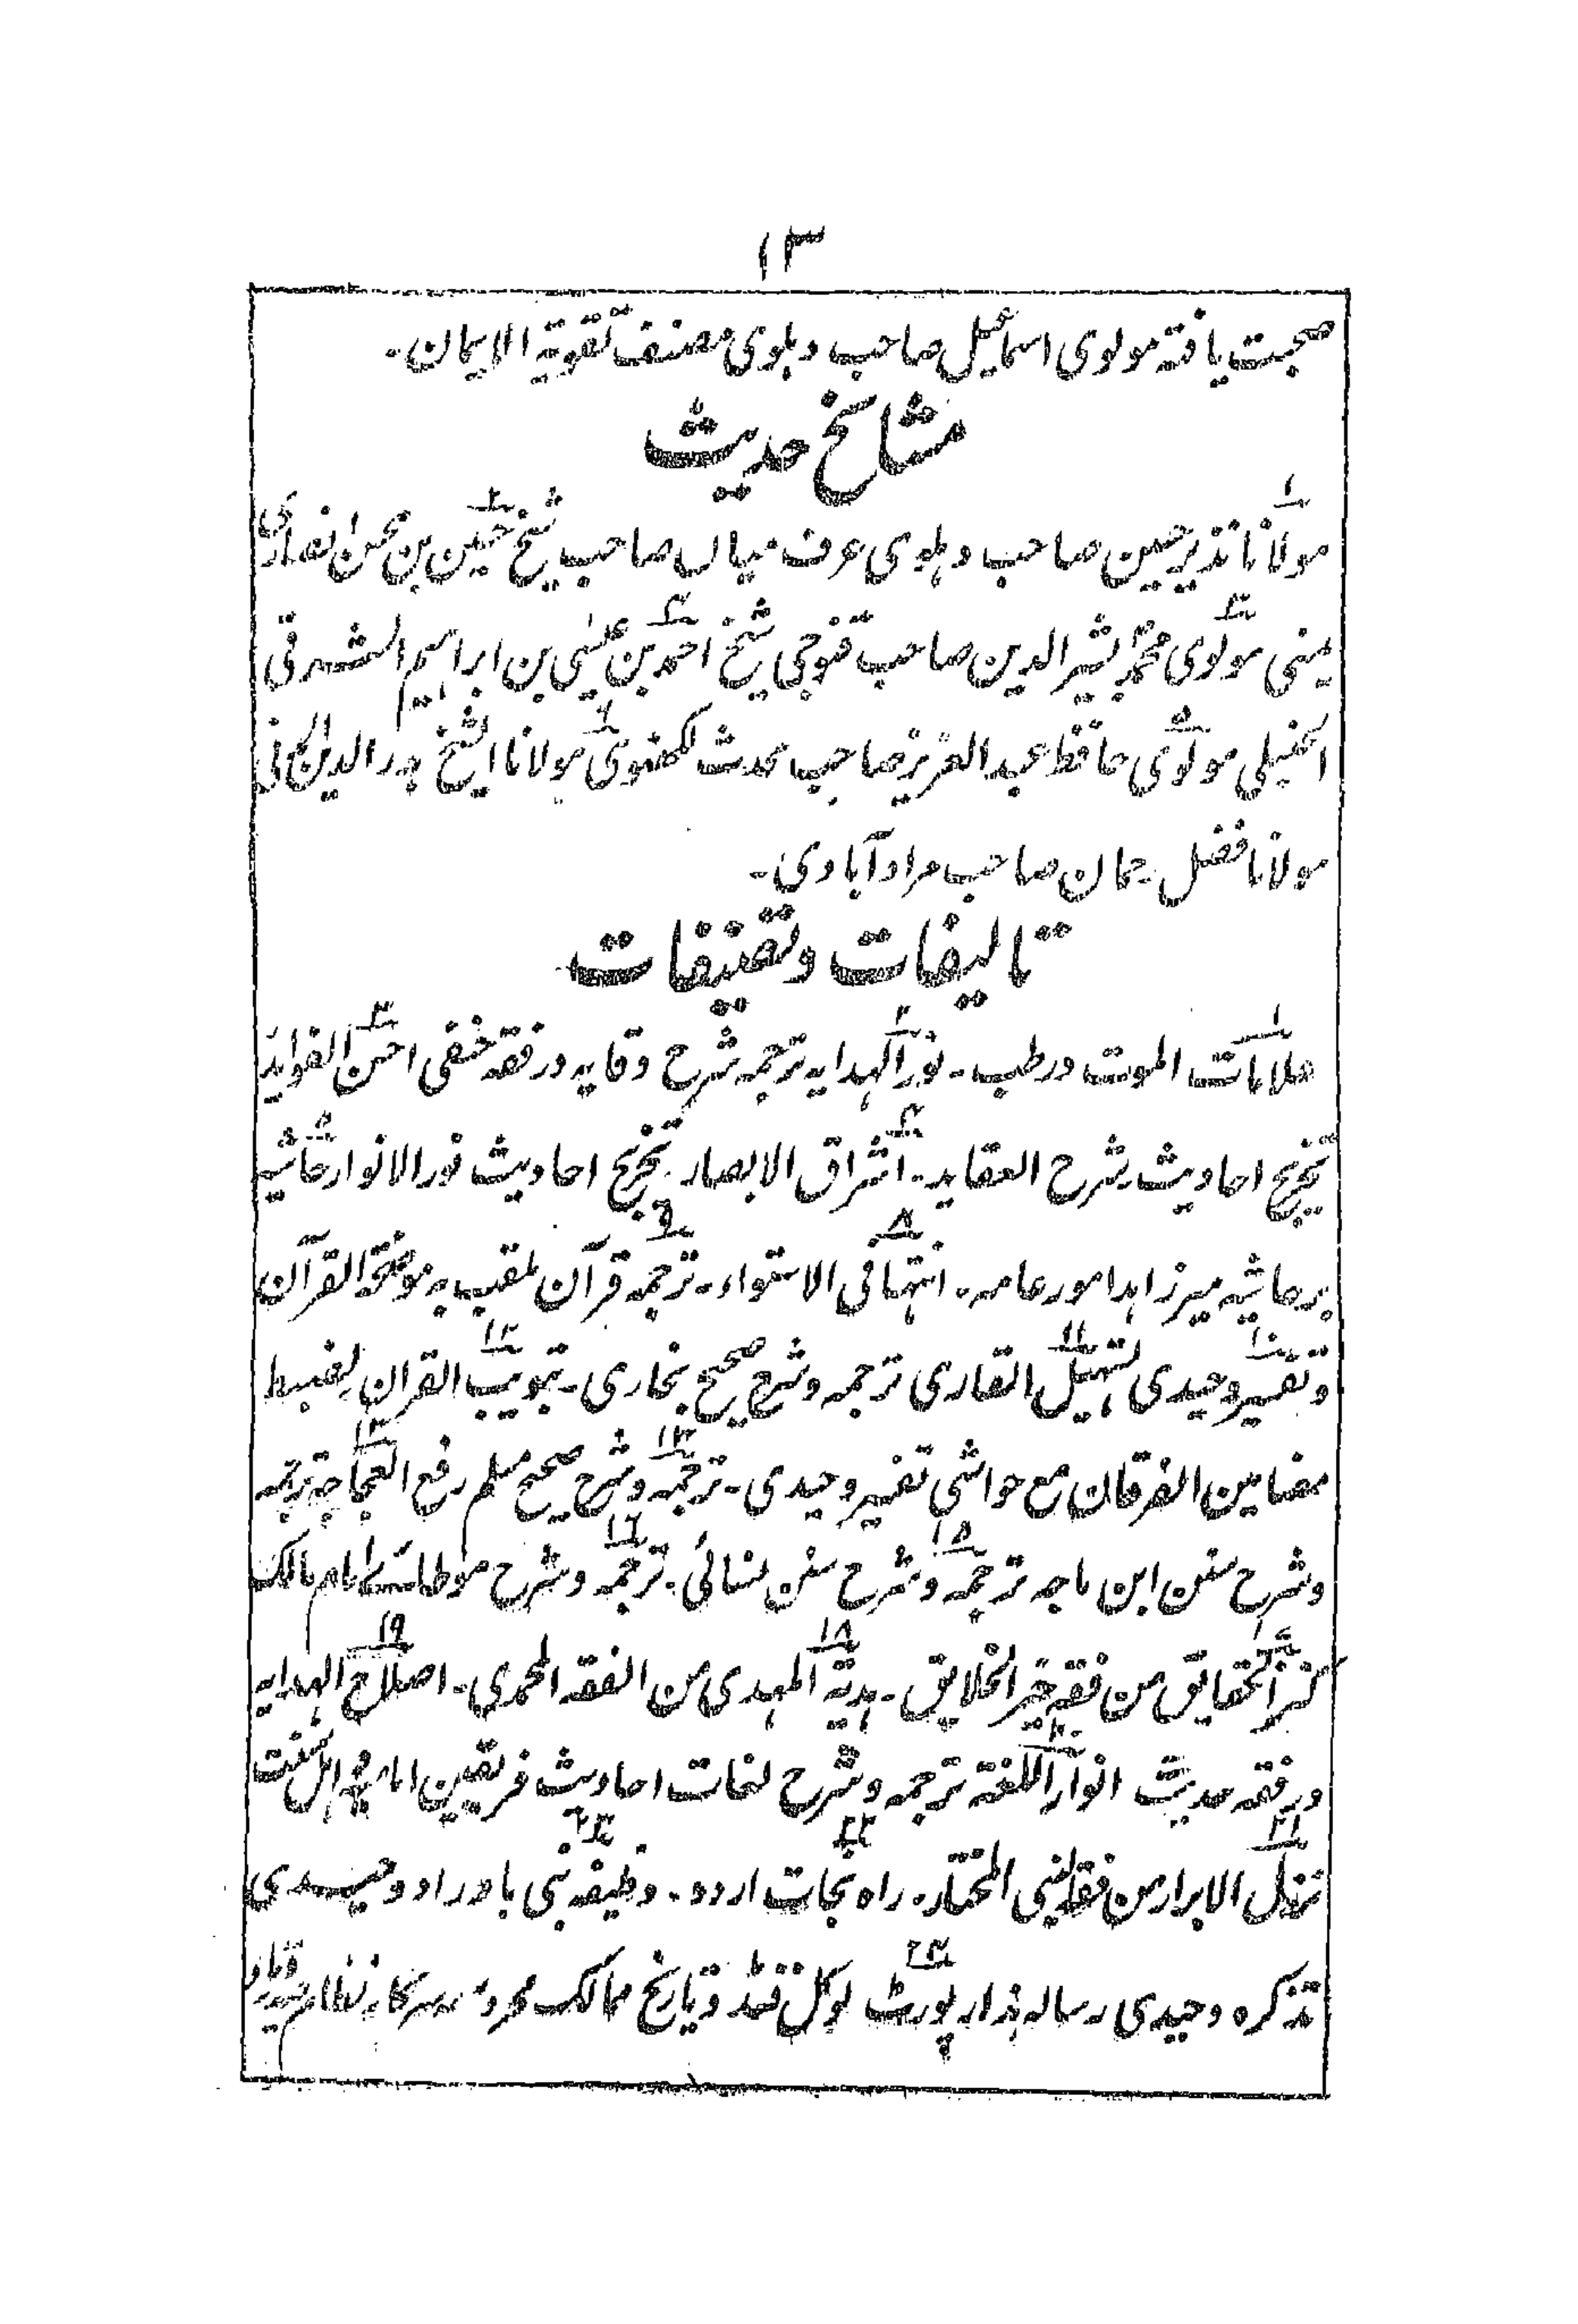 ۱۳
صحبت یافتہ مولوی اسماعیل صاحب دہلوی مصنف تقویۃ الایمان۔
مشائخ حدیث
مولانا نذیر حسین صاحب دہلوی عرف میاں صاحب شیخ حسین بن محسن انصاری
یمنی مولوی محمد بشیر الدین صاحب قنوجی شیخ احمد بن عیسٰی بن ابراہیم الشرقی
الحنبلی مولوی حافظ عبد العزیز صاحب محدث لکھنوی مولانا الشیخ بدر الدین المدنی
مولانا فضل رحمان صاحب مراد آبادی۔
تالیفات وتصنیفات
علامات الموت در طب۔ نور الہدایہ ترجمہ شرح وقایہ در فقہ حنفی احسن الفواید
تخریج احادیث شرح العقاید۔ اشراق الابصار تخریج احادیث نور الانوار حاشیہ
بر حاشیہ میر زاہد امور عامہ۔ انتہا فی الاستواء۔ ترجمہ قرآن ملقب بہ موضحۃ القرآن
وتفسیر وحیدی تسہیل القاری ترجمہ وشرح صحیح بخاری۔ تبویب القران لضبط
مضامین الفرقان مع حواشی تفسیر وحیدی۔ ترجمہ وشرح صحیح مسلم رفع العجاجہ ترجمہ
وشرح سنن ابن ماجہ ترجمہ وشرح سنن نسائی۔ ترجمہ وشرح موطائے امام مالک
کنز الحقایق من فقہ خیر الخلایق۔ ہدیۃ المہدی من الفقہ المحمدی۔ اصلاح الہدایہ
در فقہ حدیث انوار اللغۃ ترجمہ وشرح لغات احادیث فریقین امامیہ و اہل سنت
نزل الابرار من فقہ النبی المختار۔ راہ نجات اردو۔ وظیفہ نبی باوراد وحیدی
تذکرہ وحیدی رسالہ ہذا رپورٹ لوکل فنڈ وتاریخ ممالک محروسہ سرکار نظام